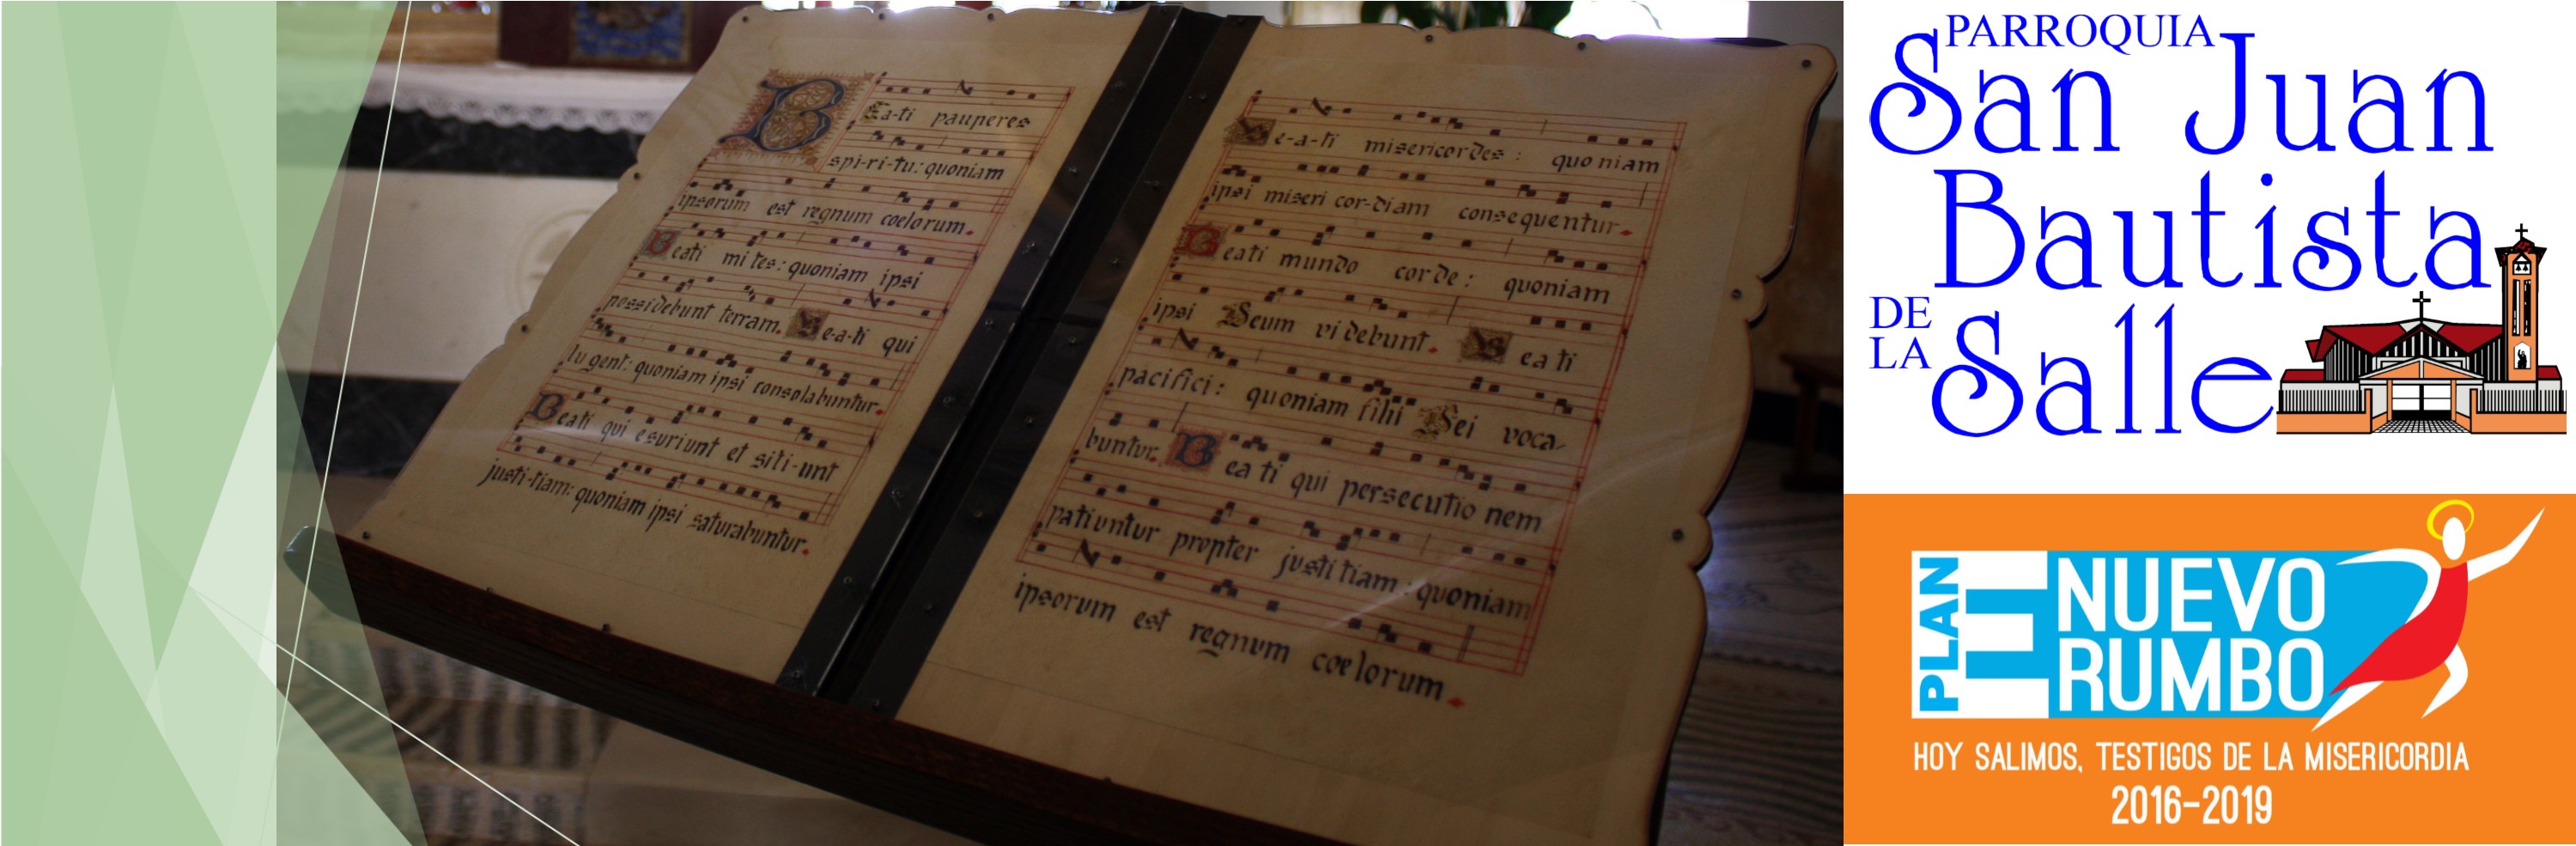 Ea-ti pauperes
spi-ri-tu: quoniam
ipsorum est regnum coelorum.
Beati mites: quoniam ipsi
possidebunt terram. Be-a-ti qui
lugent: quoniam ipsi consolabuntur.
Beati qui esuriunt et siti-unt
justi-tiam: quoniam ipsi saturabuntur.
Be-a-ti misericordes: quoniam
ipsi miseri cor-diam consequentur.
Beati mundo corde: quoniam
ipsi Deum videbunt. Beati
pacifici: quoniam filii Dei voca-
buntur. Beati qui persecutio nem
patiuntur propter justitiam: quoniam
ipsorum est regnum coelorum.
PARROQUIA
San Juan
Bautista
DE LA
Salle
PLAN E NUEVO
RUMBO
HOY SALIMOS, TESTIGOS DE LA MISERICORDIA
2016-2019